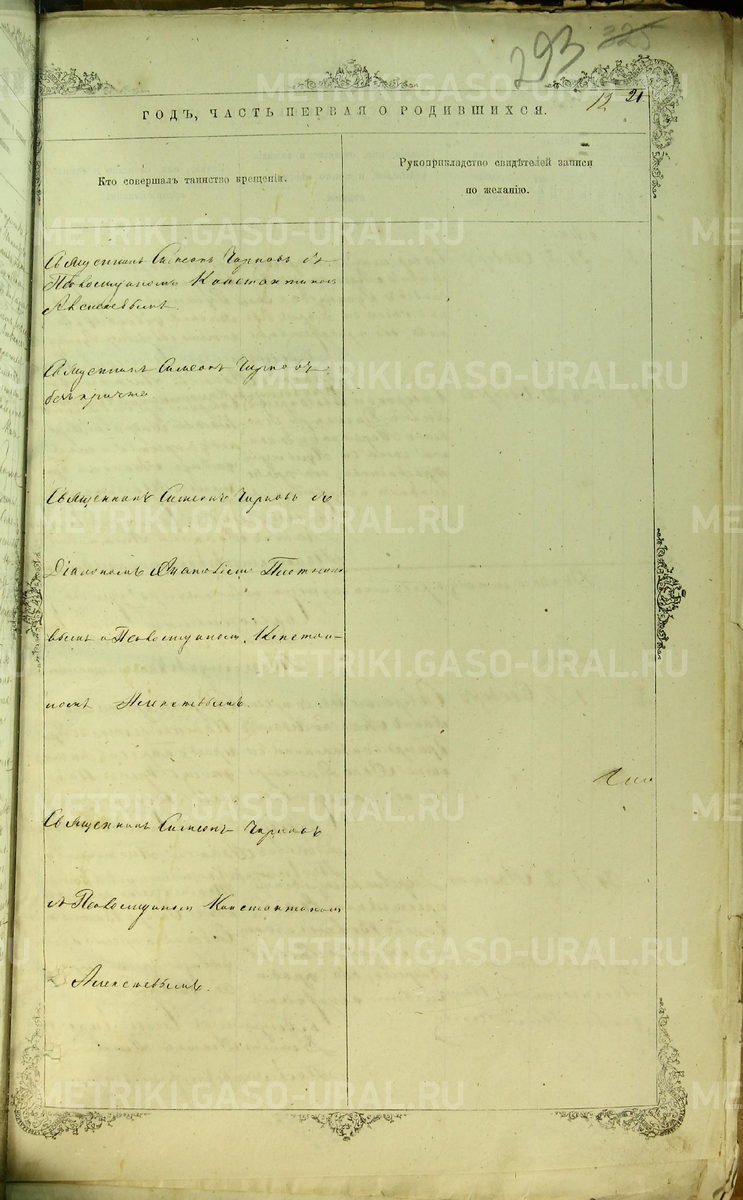 293 325
12 21
ГОДЪ, ЧАСТЬ ПЕРВАЯ О РОДИВШИХСЯ.
Кто совершалъ таинство крещенія.
Рукоприкладство свидѣтелей записи
по желанію.
Священникъ Симеонъ Чирковъ съ
Псаломщикомъ Константиномъ
Алексѣевымъ.
Священникъ Симеонъ Чирковъ
безъ причта
Священникъ Симеонъ Чирковъ съ
Діакономъ
вымъ и Псаломщикомъ Констан-
номъ Алексѣевымъ.
Священникъ Симеонъ Чирковъ
съ Псаломщикомъ Константиномъ
Алексѣевымъ.
METRIKI.GASO-URAL.RU